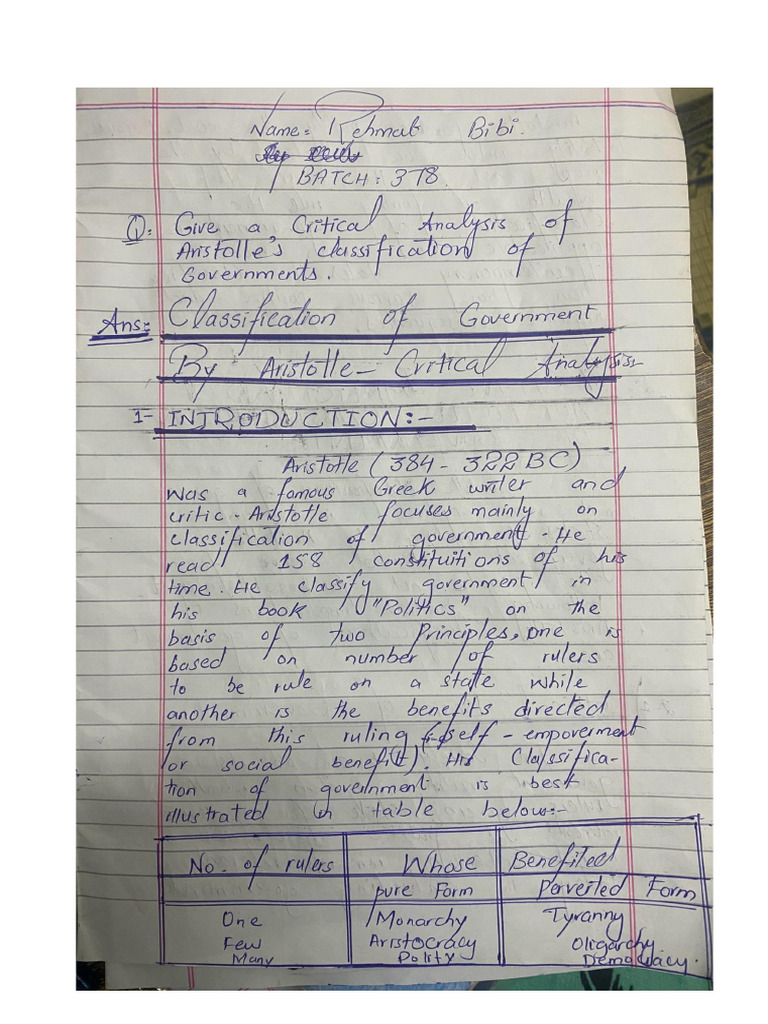 Name: Rehmat Bibi.
BATCH: 378.
Q: Give a Critical Analysis of
Aristolle's classification of
Governments.
Ans:- Classification of Government
By Aristotle - Critical Analysis
1- INTRODUCTION:-
Aristotle (384 - 322 BC)
was a famous Greek writer and
critic. Aristotle focuses mainly on
classification of government. He
read 158 constituitions of his
time. He classify government in
his book "Politics" on the
basis of two Principles, one is
based on number of rulers
to be rule on a state while
another is the benefits directed
from this ruling (self-empowerment
or social benefit). His Classifica-
tion of government is best
illustrated in table below:-
No. of rulers Whose Benefited
pure Form Perverted Form
One Monarchy Tyranny
Few Aristocracy Oligarchy
Many Polity Democracy.